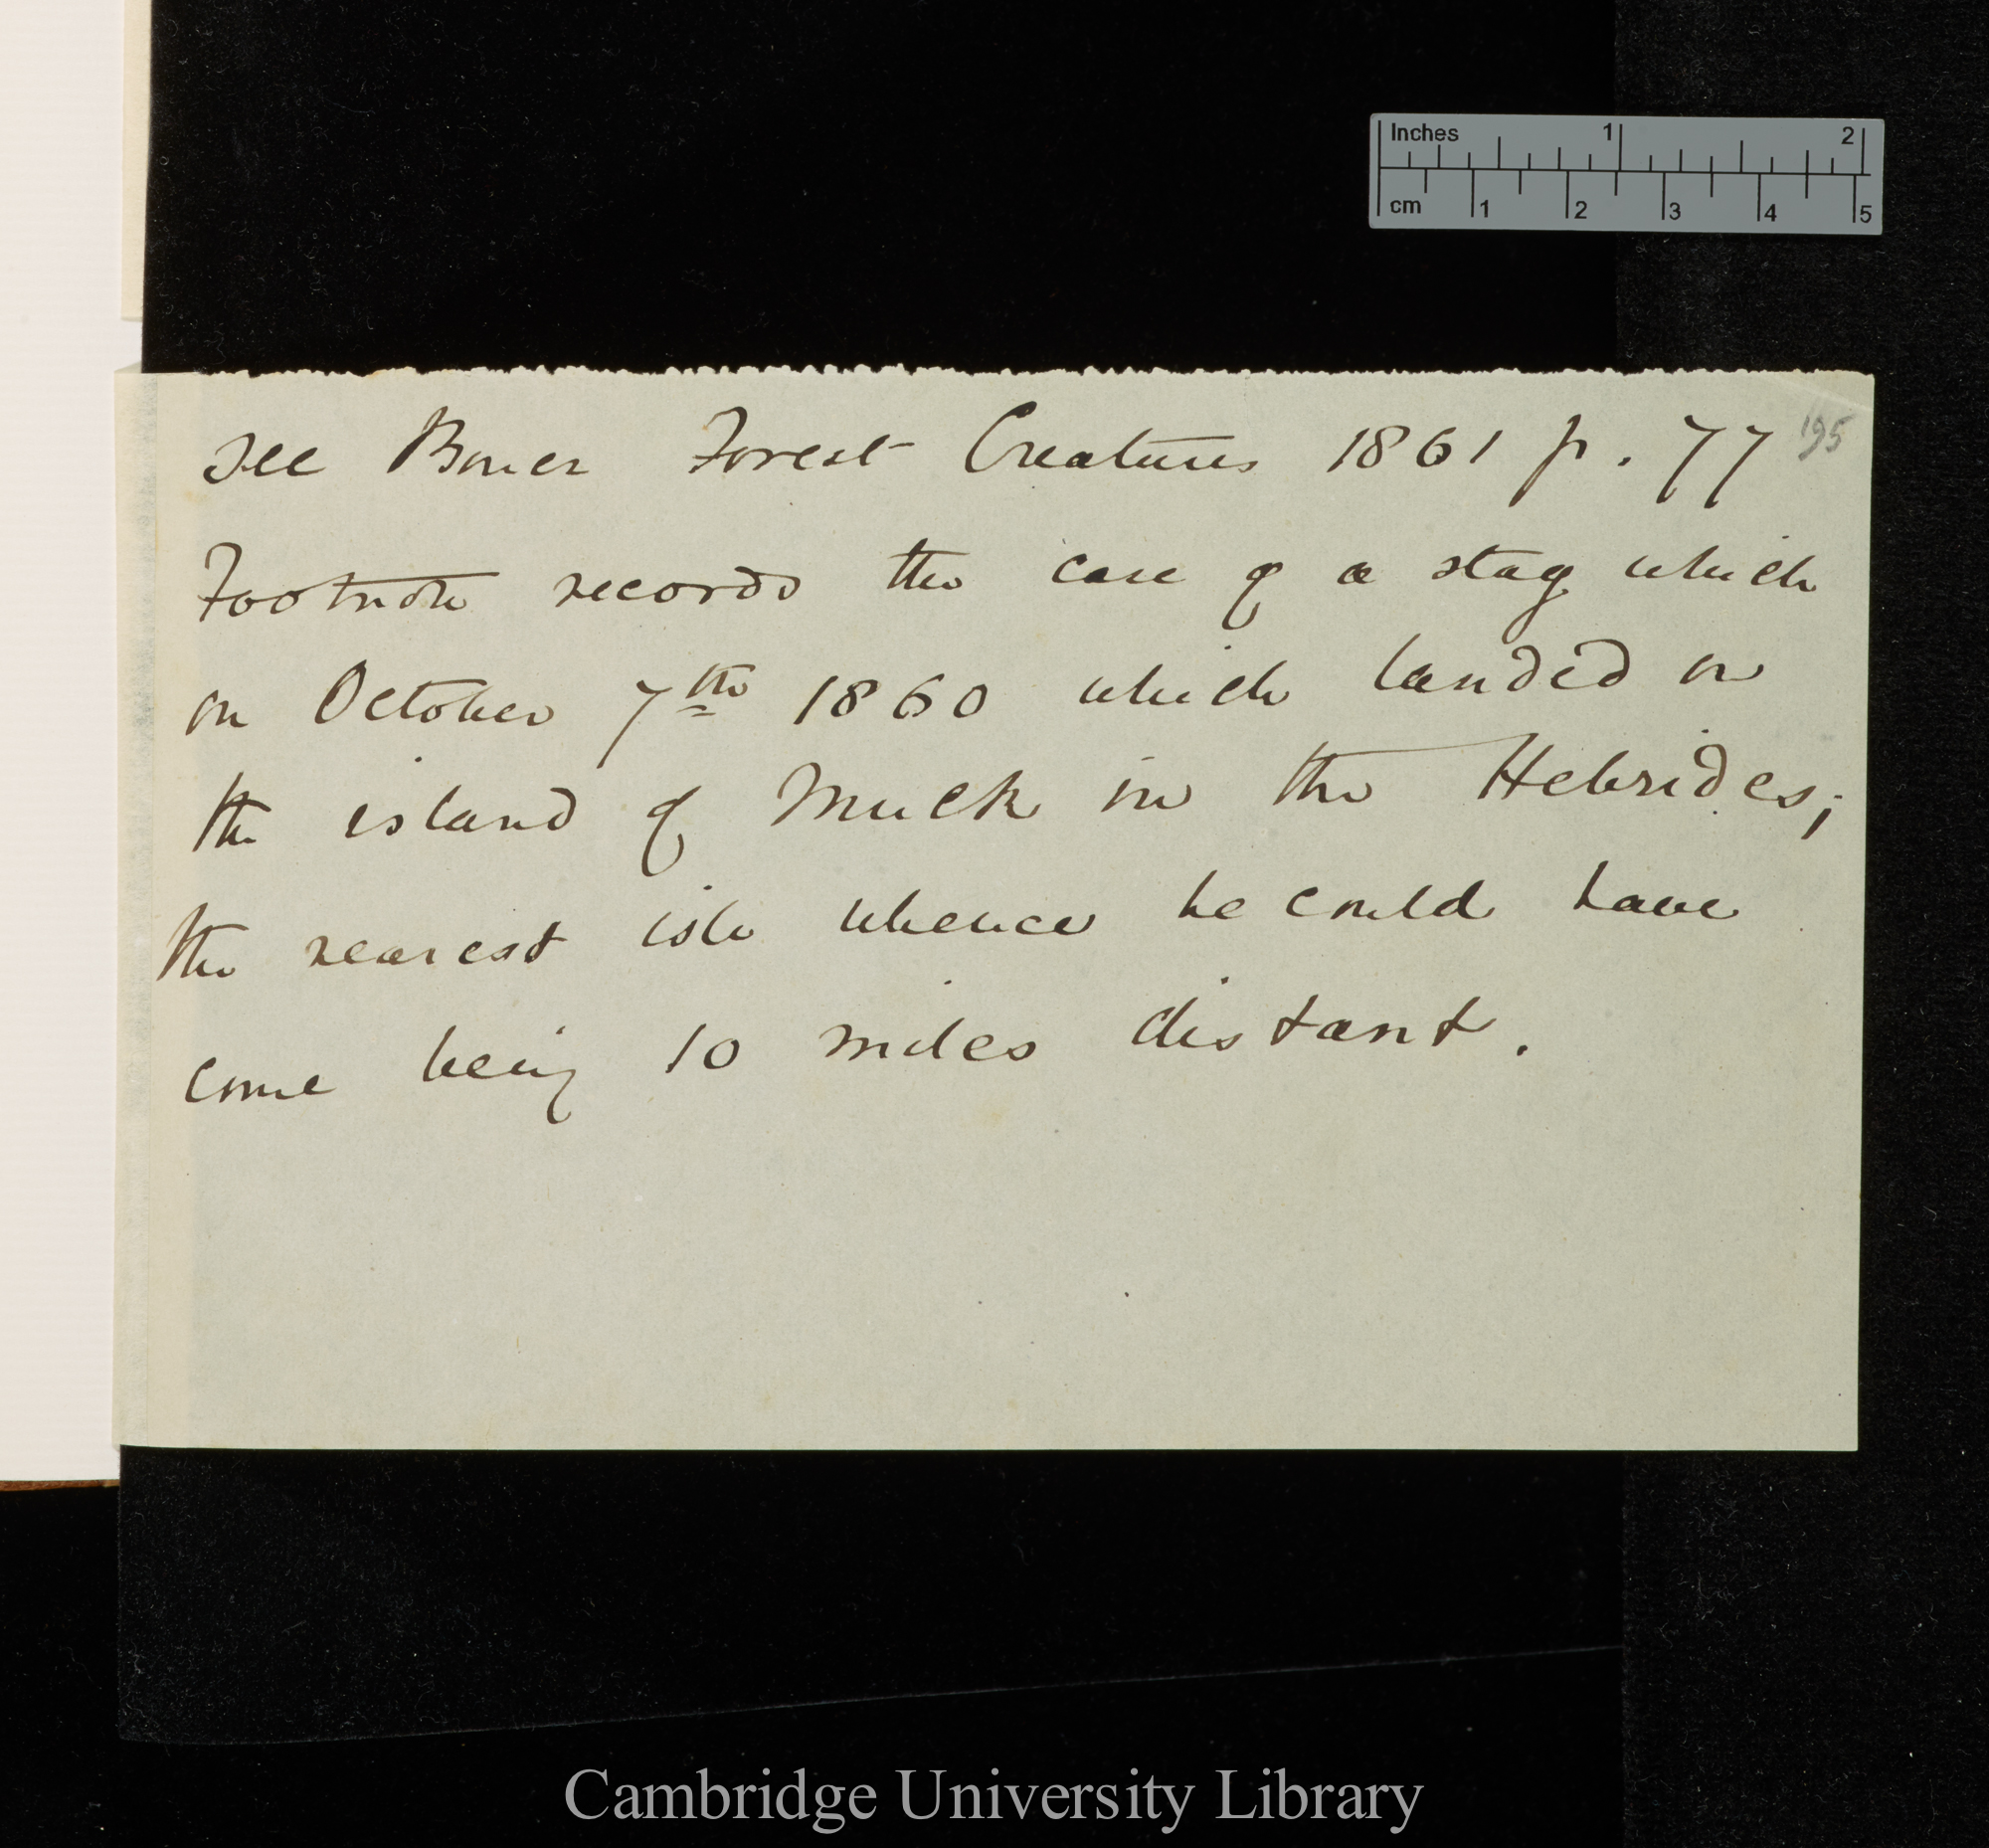 Inches 1 2
cm 1 2 3 4 5
195
see Boner Forest Creatures 1861 p. 77
Footnote records the case of a stag which
on October 7th 1860 which landed on
the island of Muck in the Hebrides;
the nearest isle whence he could have
come being 10 miles distant.
Cambridge University Library